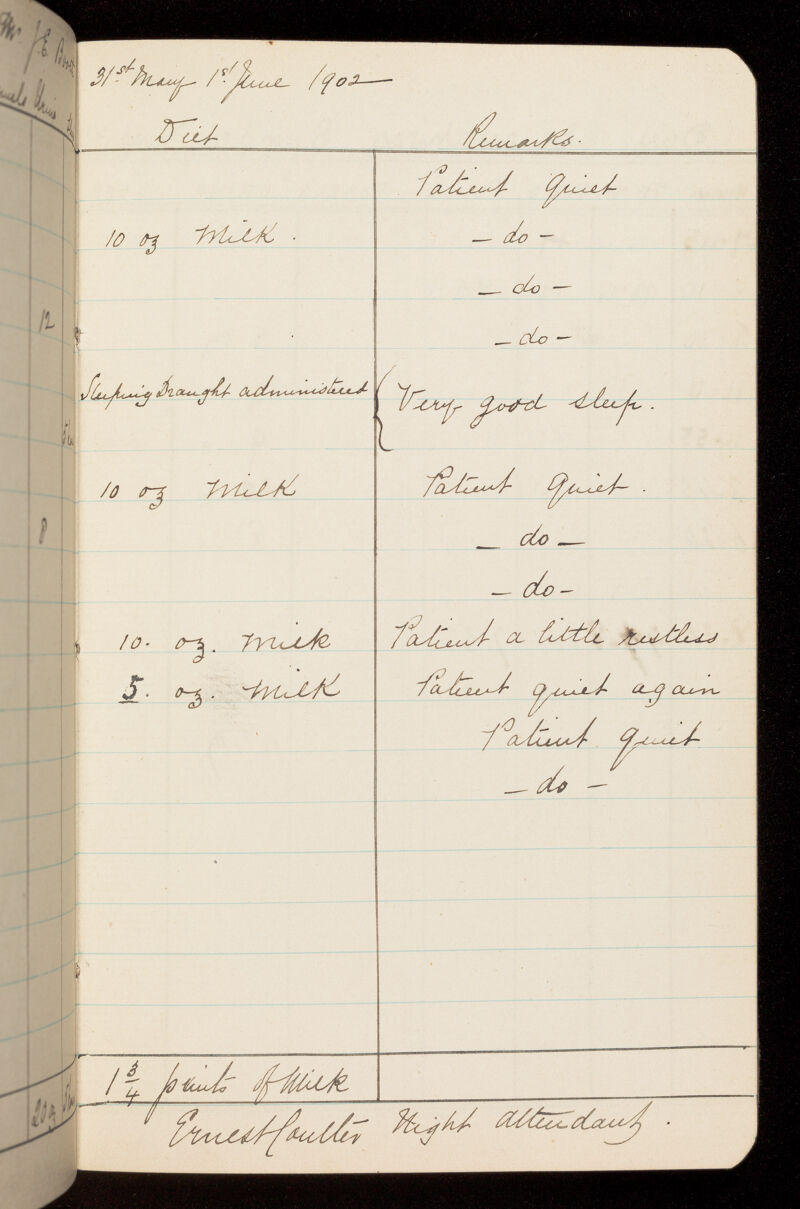 Mr J. E.
31st May 1st June 1902
Diet Remarks.
Patient Quiet
10 oz Milk. - do -
- do -
12
- do -
Sleeping Draught administered { Very good sleep.
10 oz Milk Patient Quiet.
8
- do -
- do -
10. oz. Milk Patient a little restless
5. oz. Milk Patient quiet again
Patient Quiet
- do -
1 3/4 pints of Milk
20 oz
Ernest Coulter Night Attendant.